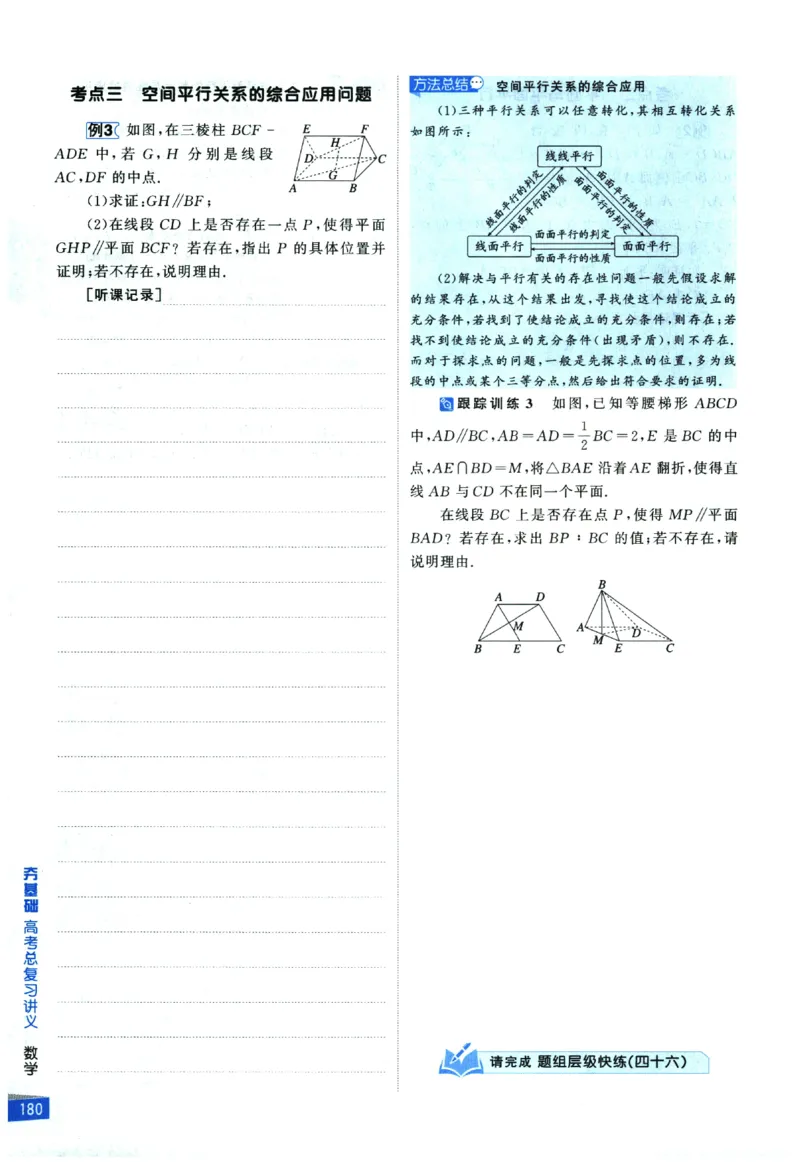 考点三 空间平行关系的综合应用问题
例3 如图,在三棱柱 BCF-
ADE 中,若 G,H 分别是线段
AC,DF 的中点.
E F
H
D C
G
A B
(1)求证:GH∥BF;
(2)在线段 CD 上是否存在一点 P,使得平面
GHP∥平面 BCF? 若存在,指出 P 的具体位置并
证明;若不存在,说明理由.
[听课记录]
方法总结 空间平行关系的综合应用
(1)三种平行关系可以任意转化,其相互转化关系
如图所示:
线线平行
线面平行的判定
线面平行的性质
面面平行的性质
面面平行的判定
线面平行
面面平行的判定
面面平行
面面平行的性质
(2)解决与平行有关的存在性问题一般先假设求解
的结果存在,从这个结果出发,寻找使这个结论成立的
充分条件,若找到了使结论成立的充分条件,则存在;若
找不到使结论成立的充分条件(出现矛盾),则不存在.
而对于探求点的问题,一般是先探求点的位置,多为线
段的中点或某个三等分点,然后给出符合要求的证明.
跟踪训练 3 如图,已知等腰梯形 ABCD
中,AD∥BC,AB=AD=1/2BC=2,E 是 BC 的中
点,AE∩BD=M,将△BAE 沿着 AE 翻折,使得直
线 AB 与 CD 不在同一个平面.
在线段 BC 上是否存在点 P,使得 MP∥平面
BAD? 若存在,求出 BP∶BC 的值;若不存在,请
说明理由.
A D
M
B E C
B
A D
M E C
请完成 题组层级快练(四十六)
夯基础 高考总复习讲义 数学
180